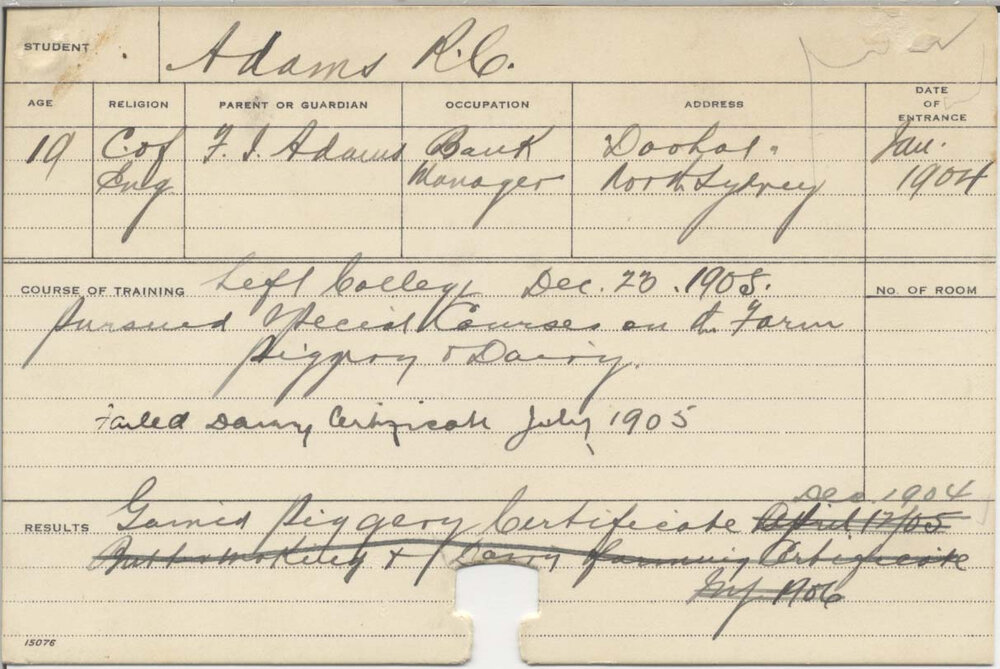 STUDENT Adams R.C.
AGE RELIGION PARENT OR GUARDIAN OCCUPATION ADDRESS DATE OF ENTRANCE
19 C. of F. I. Adams Bank Jan.
Eng Manager North Sydney 1904
COURSE OF TRAINING Left College Dec. 23. 1905. No. OF ROOM
Pursued Special Courses on th Farm
Piggery & Dairy.
Failed Dairy Certificate July 1905
Dec. 1904
RESULTS Gained Piggery Certificate April 12/05
Butter making & Dairy farming Certificate
1906
15076